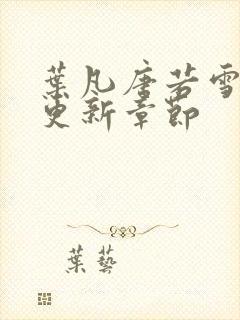 葉凡唐若雪
更新章節
葉藝